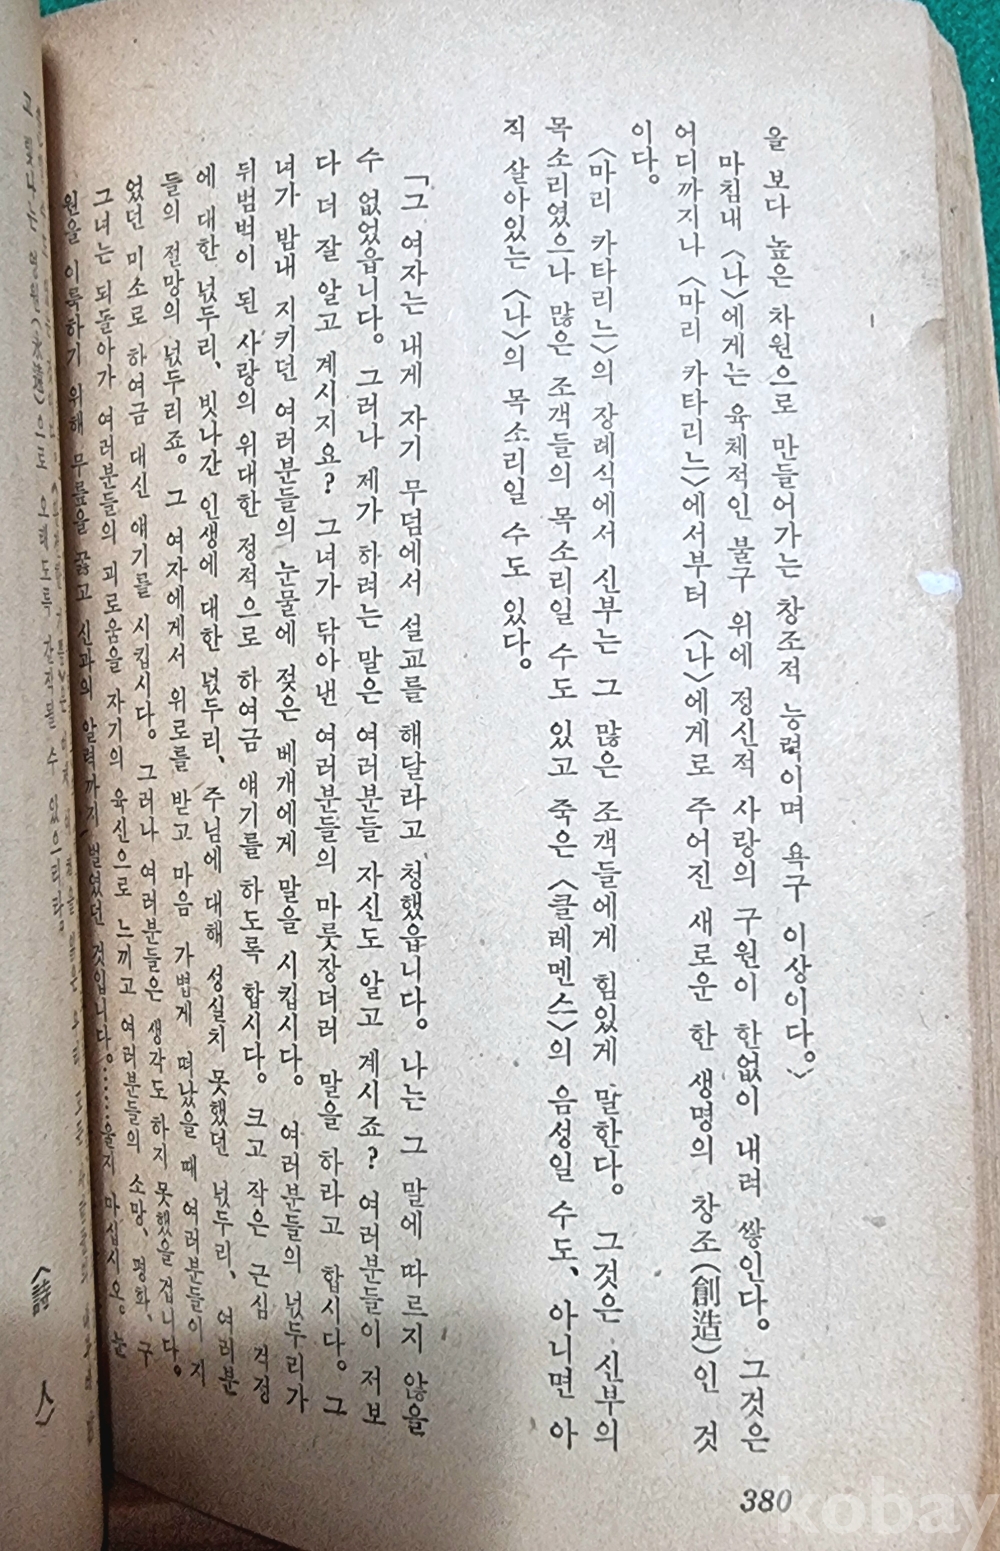 을 보다 높은 차원으로 만들어가는 창조적 능력이며 욕구 이상이다.〉
마침내 〈나〉에게는 육체적인 불구 위에 정신적 사랑의 구원이 한없이 내려 쌓인다. 그것은
어디까지나 〈마리 카타리느〉에서부터 〈나〉에게로 주어진 새로운 한 생명의 창조(創造)인 것
이다.
〈마리 카타리느〉의 장례식에서 신부는 그 많은 조객들에게 힘있게 말한다. 그것은 신부의
목소리였으나 많은 조객들의 목소리일 수도 있고 죽은 〈클레멘스〉의 음성일 수도, 아니면 아
직 살아있는 〈나〉의 목소리일 수도 있다.
「그 여자는 내게 자기 무덤에서 설교를 해달라고 청했읍니다. 나는 그 말에 따르지 않을
수 없었읍니다. 그러나 제가 하려는 말은 여러분들 자신도 알고 계시죠? 여러분들이 저보
다 더 잘 알고 계시지요? 그녀가 닦아낸 여러분들의 마룻장더러 말을 하라고 합시다. 그
녀가 밤내 지키던 여러분들의 눈물에 젖은 베개에게 말을 시킵시다. 여러분들의 넋두리가
뒤범벅이 된 사랑의 위대한 정적으로 하여금 얘기를 하도록 합시다. 크고 작은 근심 걱정
에 대한 넋두리, 빗나간 인생에 대한 넋두리, 주님에 대해 성실치 못했던 넋두리, 여러분
들의 절망의 넋두리죠. 그 여자에게서 위로를 받고 마음 가볍게 떠났을 때 여러분들이 지
었던 미소로 하여금 대신 얘기를 시킵시다. 그러나 여러분들은 생각도 하지 못했을 겁니다.
그녀는 되돌아가 여러분들의 괴로움을 자기의 육신으로 느끼고 여러분들의 소망, 평화, 구
원을 이룩하기 위해 무릎을 꿇고 신과의 알력까지 벌였던 것입니다.……울지 마십시오. 눈
고 빛나는 영원(永遠)으로 오래도록 간직될 수 있으리라.
380
kobay